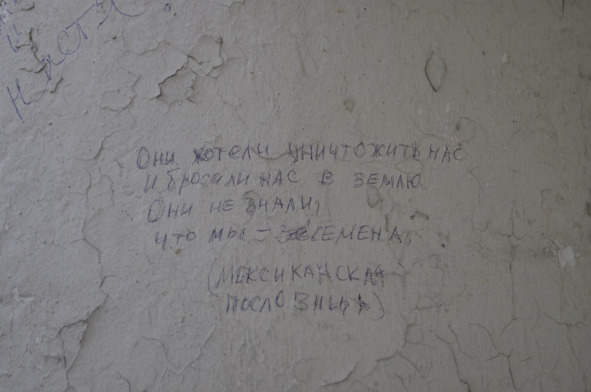 Они хотели уничтожить нас
и бросали нас в землю
Они не знали,
что мы – семена.
(Мексиканская
пословица)